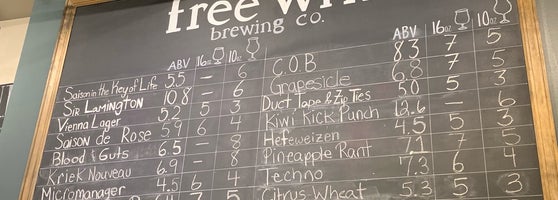 free
brewing co.
ABV 16oz 10oz
Saison in the Key of Life 5.5 – 6
Sir Lamington 10.8 – 6
Vienna Lager 5.2 5 3
Saison de Rose 5.9 6 4
Blood & Guts 6.5 – 8
Kriek Nouveau 6.9 – 8
Micromanager 4.5 6 4
7 5
ABV 16oz 10oz
C.O.B 8.3 7 5
Grapesicle 6.8 7 5
Duct Tape & Zip Ties 5.0 5 3
Kiwi Kick Punch 12.6 – 6
Hefeweizen 4.5 5 3
Pineapple Rant 7.1 7 5
Techno 7.3 6 4
Citrus Wheat 5.3 5 3